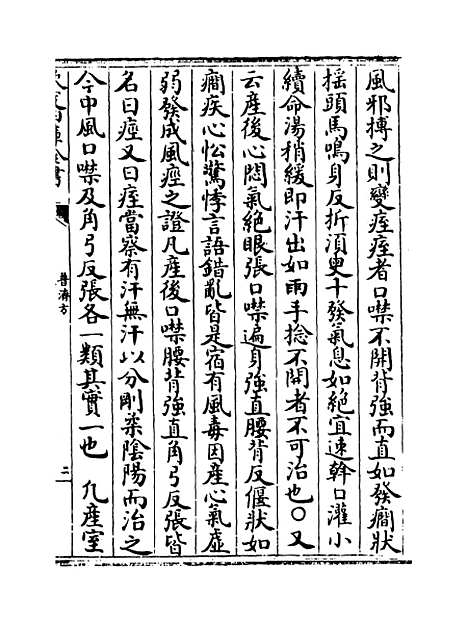 風邪搏之則變痙痙者口噤不開背強而直如發癎狀
揺頭馬鳴身反折湏㬰十發氣息如絶宜速斡口灌小
續命湯稍緩即汗出如雨手捻不開者不可治也○又
云産後心悶氣絶眼張口噤遍身強直腰背反偃狀如
癎疾心忪驚悸言語錯亂皆是宿有風毒因産心氣虛
弱發成風痙之證凡産後口噤腰背強直角弓反張皆
名曰痙又曰痓當察有汗無汗以分剛柔陰陽而治之
今中風口噤及角弓反張各一類其實一也　凡産室
普濟方
二